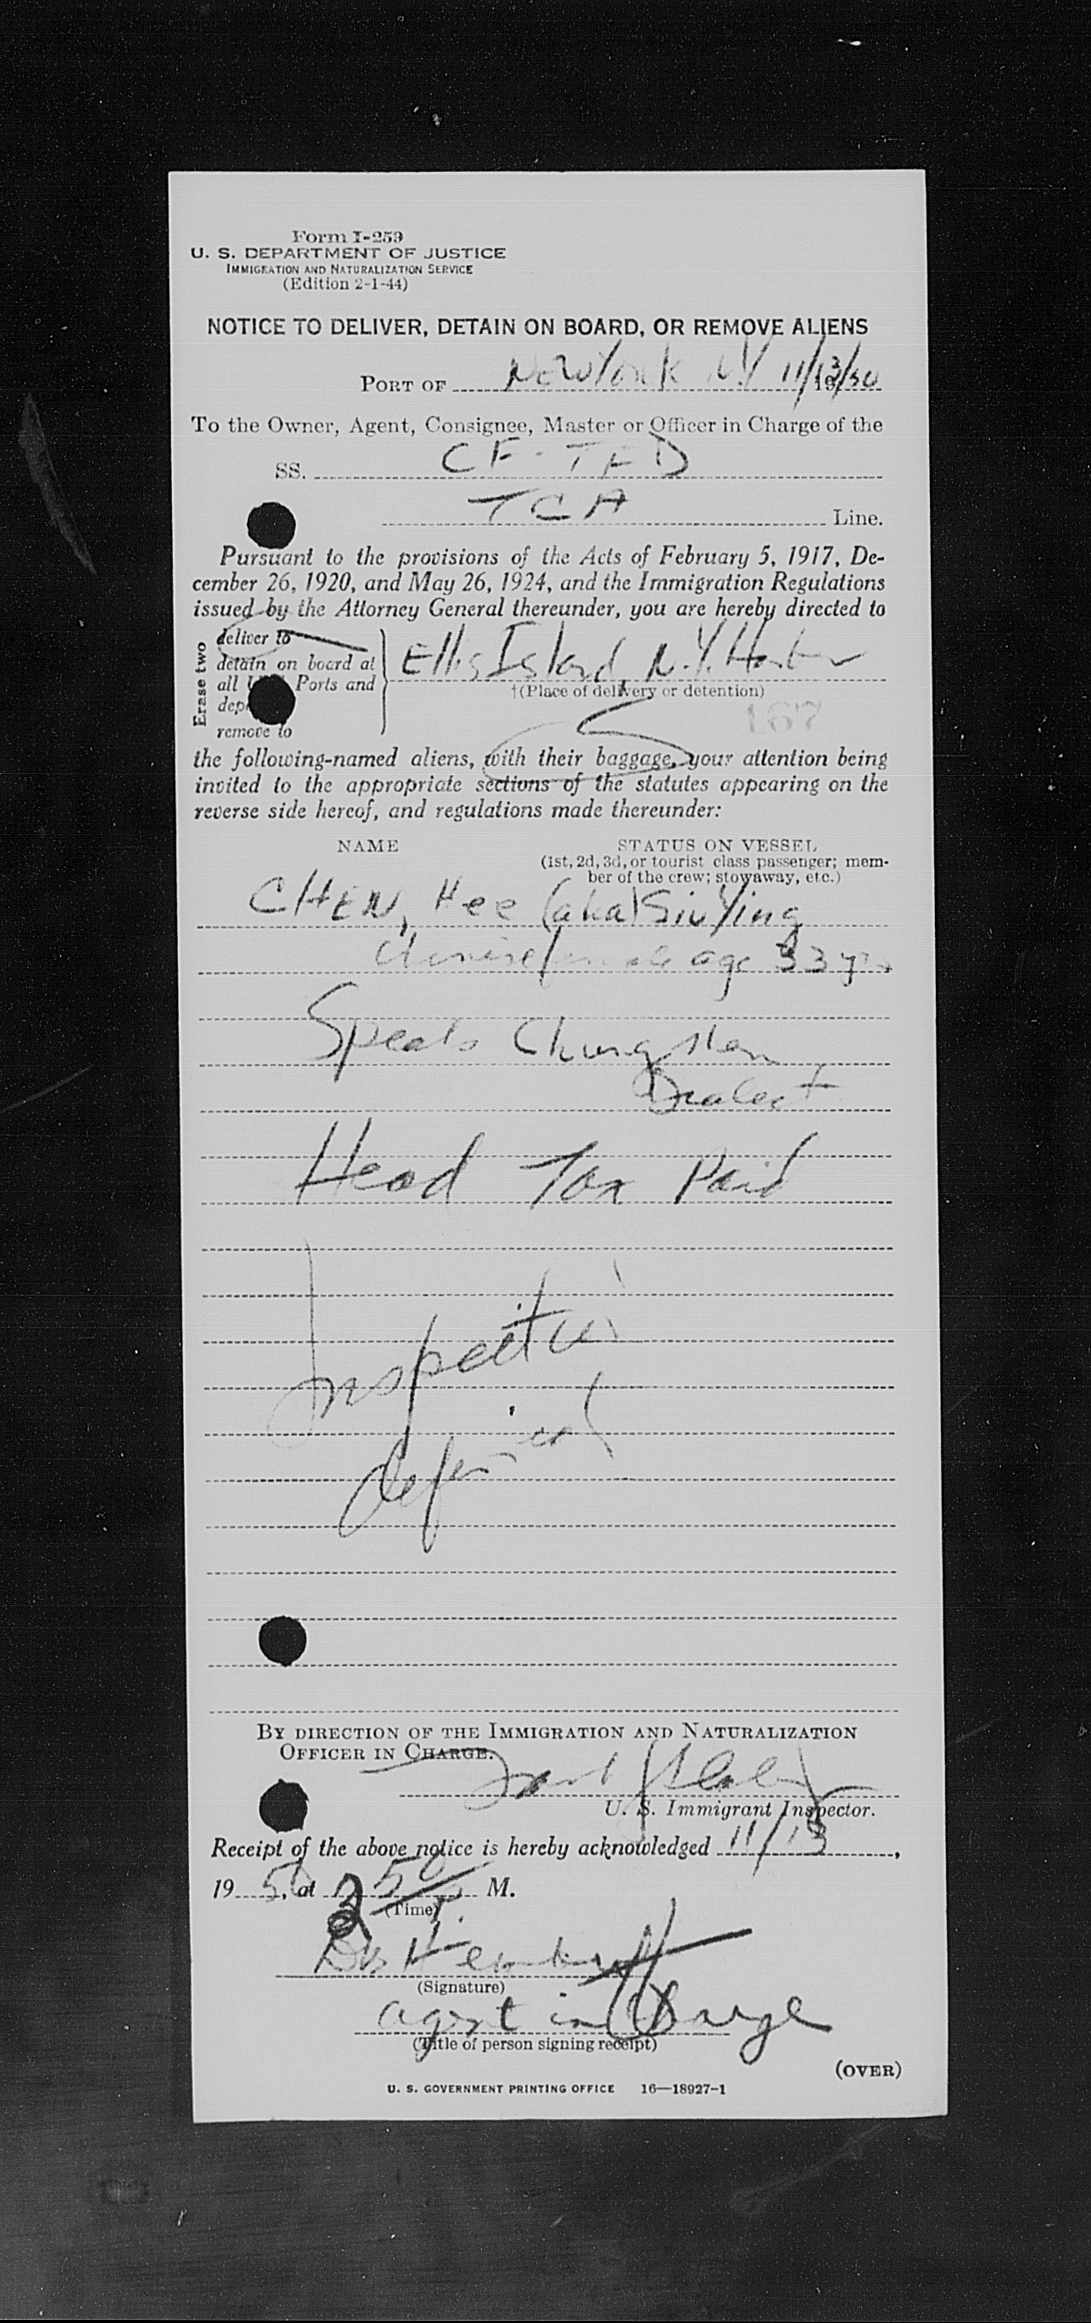 Form I-259
U. S. DEPARTMENT OF JUSTICE
IMMIGRATION AND NATURALIZATION SERVICE
(Edition 2-1-44)
NOTICE TO DELIVER, DETAIN ON BOARD, OR REMOVE ALIENS
PORT OF New York N.Y 11/13/50
To the Owner, Agent, Consignee, Master or Officer in Charge of the
SS. CF-TFD
TCA Line.
Pursuant to the provisions of the Acts of February 5, 1917, De-
cember 26, 1920, and May 26, 1924, and the Immigration Regulations
issued by the Attorney General thereunder, you are hereby directed to
Erase two
deliver to
detain on board at
all Ports and
remove to
Ellis Island, N.Y. Harbor
†(Place of delivery or detention)
167
the following-named aliens, with their baggage, your attention being
invited to the appropriate sections of the statutes appearing on the
reverse side hereof, and regulations made thereunder:
NAME STATUS ON VESSEL
(1st, 2d, 3d, or tourist class passenger; mem-
ber of the crew; stowaway, etc.)
CHEN, Hee (aka) Siu Ying
Chinese age 33 yrs
Speaks Chungshan
Dialect
Head Tax Paid
Inspection
deferred
BY DIRECTION OF THE IMMIGRATION AND NATURALIZATION
OFFICER IN CHARGE.
U. S. Immigrant Inspector.
Receipt of the above notice is hereby acknowledged 11/13,
1950, at 350 P. M.
(Time)
(Signature)
agent in Charge
(Title of person signing receipt)
(OVER)
U. S. GOVERNMENT PRINTING OFFICE 16—18927-1